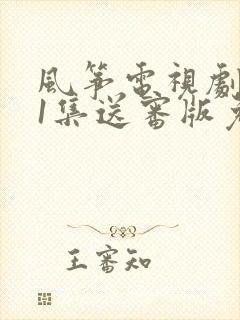 風箏電視劇
1集送審版免
王審知